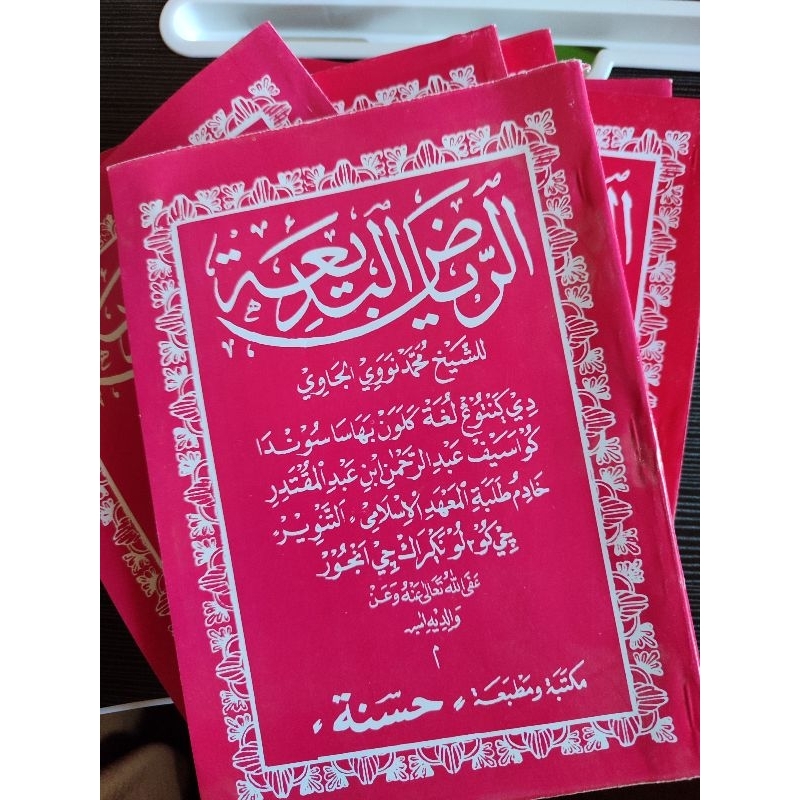 الرِّيَاضُ الْبَدِيْعَةُ
للشَّيْخِ مُحَمَّدْ نَوَوِي الْجَاوِيْ
دِيْ كَنْتُوغْ لُغَةْ كَلَوَنْ بَهَاسَا سُوْنْدَا
كُوْ اَسَيْفْ عَبْدِ الرَّحْمٰنِ ابْنِ عَبْدِ الْمُقْتَدِرِ
خَادِمُ طَلَبَةِ الْمَعْهَدِ الْاِسْلَامِيْ، اَلتَّنْوِيْرِ،
چِي اَنْجُوْرْ
عَفَى اللّٰهُ تَعَالٰى عَنْهُ وَعَنْ
وَالِدِيْهِ
م
مكتبة ومطبعة، حسنة،